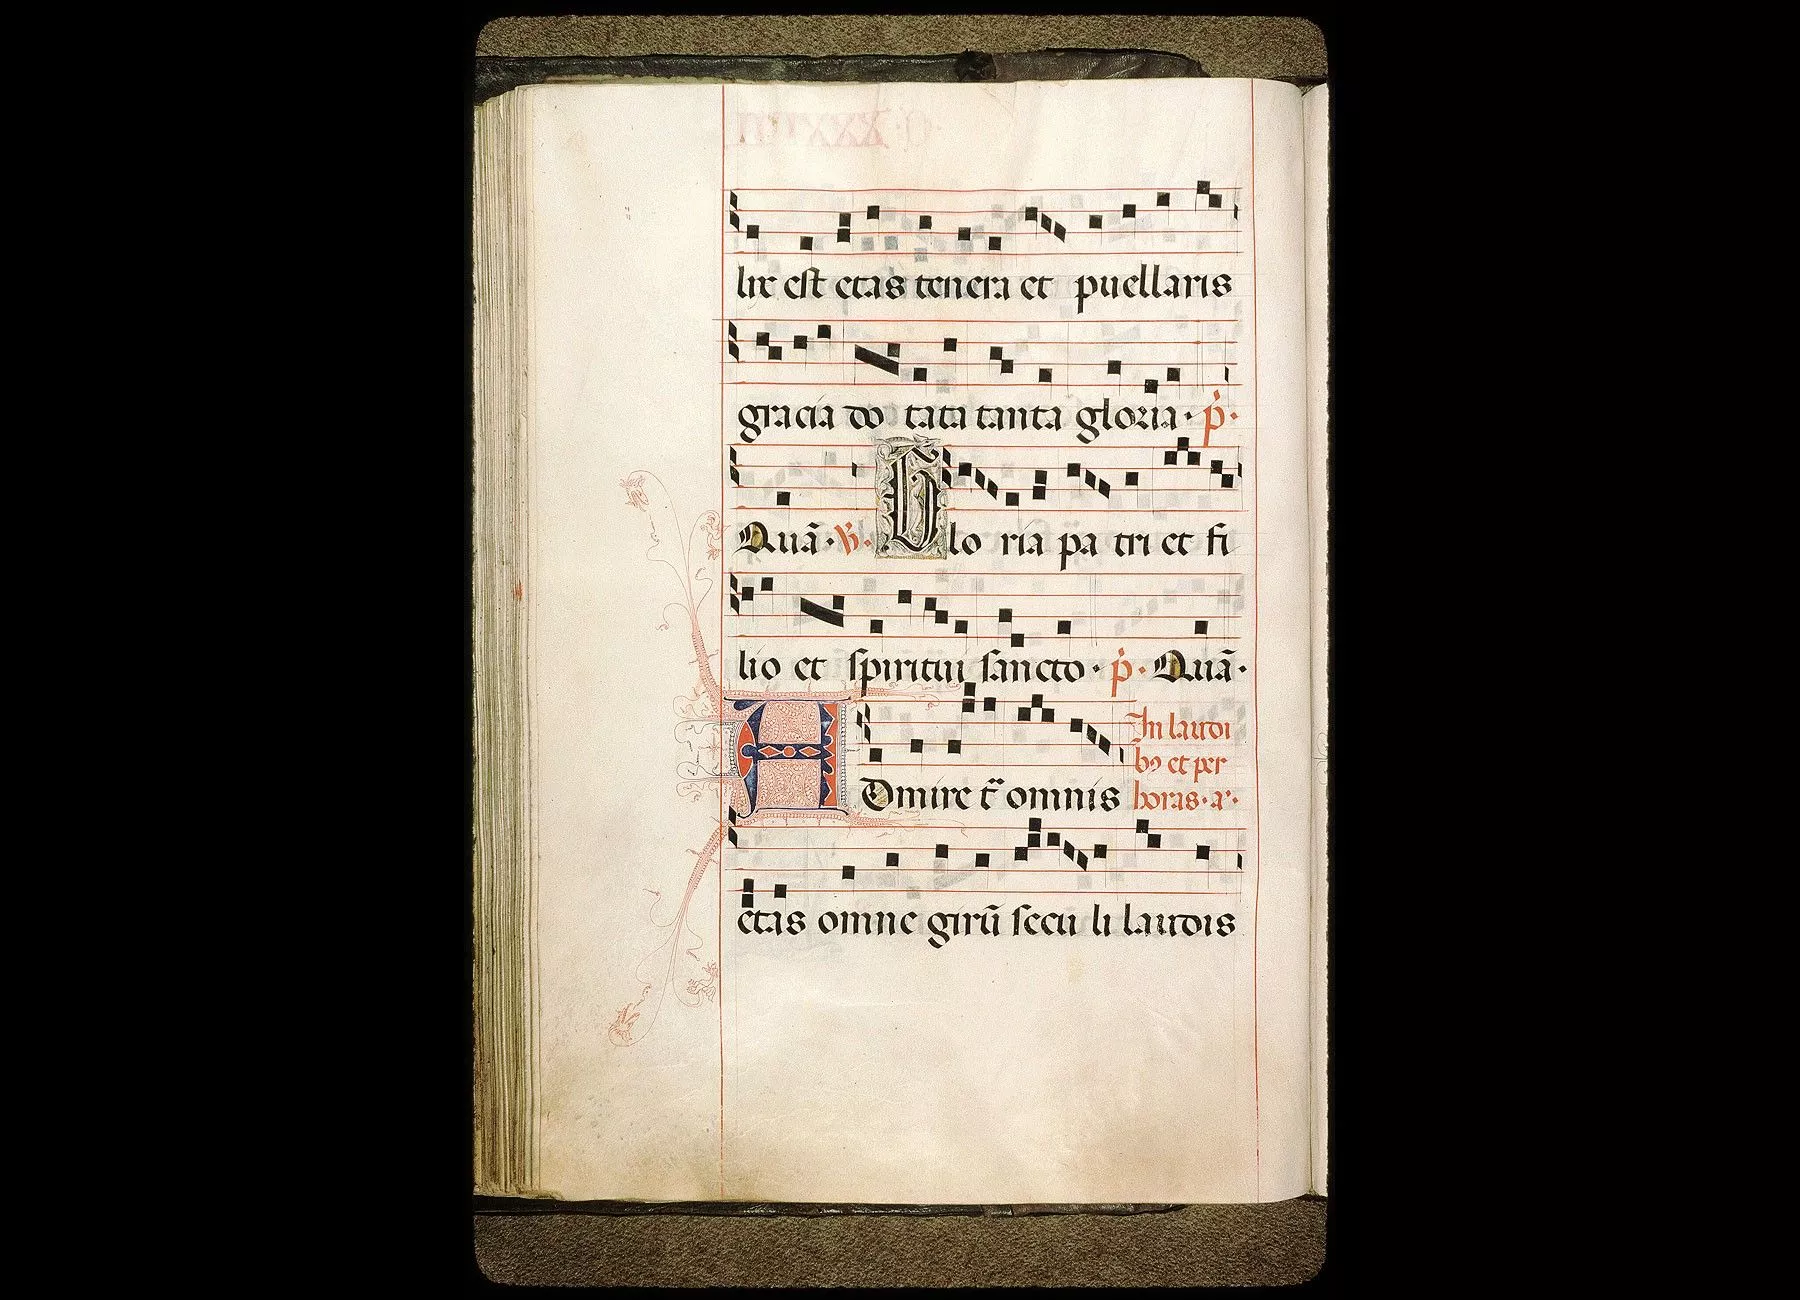 lix est etas tenera et puellaris
gracia do tata tanta gloria · p̄ ·
Quā · v̄ · Glo ria pa tri et fi
lio et spiritui sancto · p̄ · Quā ·
In laudi
bꝯ et per
ADmire t̄ omnis horas · a ·
etas omne girū secu li laudis